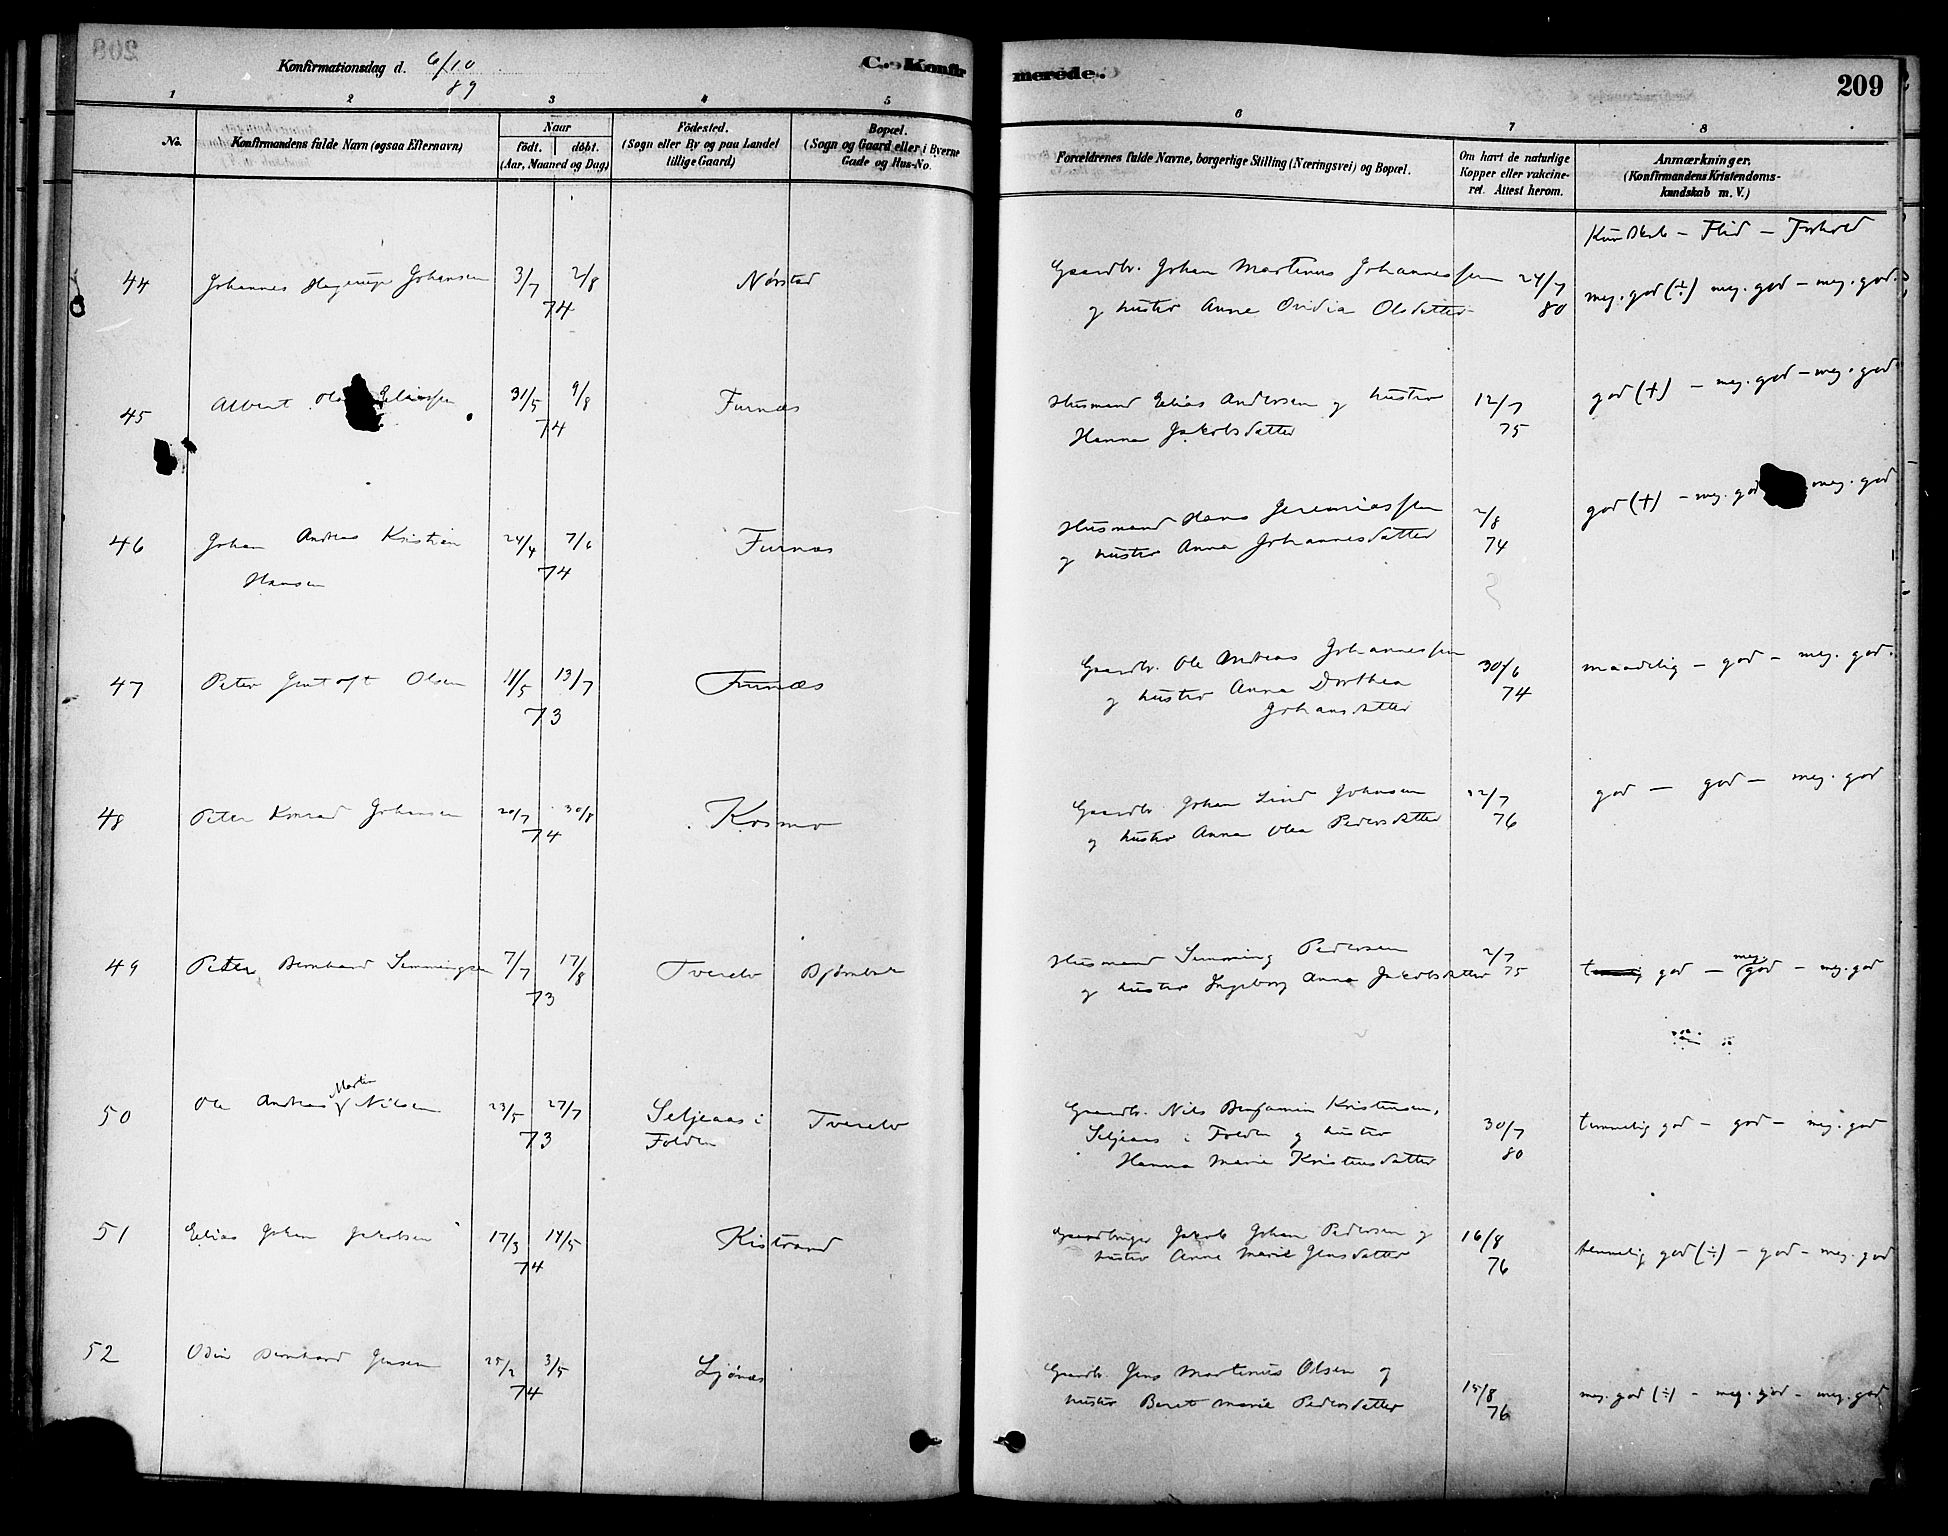 Konfirmationsdag d. 6/10 89
C. Konfirmerede.
209
1 2 3 4 5 6 7 8
No. Konfirmandens fulde Navn (ogsaa Efternavn) Naar født. døbt. (Aar, Maaned og Dag) Fødested. (Sogn eller By og paa Landet tillige Gaard) Bopæl. (Sogn og Gaard eller i Byerne Gade og Hus-No. Forældrenes fulde Navne, borgerlige Stilling (Næringsvei) og Bopæl. Om havt de naturlige Kopper eller vakcineret. Attest herom. Anmærkninger. (Konfirmandens Kristendomskundskab m. V.)
Kundskab - Flid - Forhold
44 Johannes Hagerup Johansen 3/7 2/8 74 Nørstad Gaardbr. Johan Martinus Johannessen 24/7 80 meg. god (÷) meg. god - meg. god.
og hustro Anne Ovidia Olsdatter
45 Albert Eliassen 31/5 9/8 74 Furnæs Husmand Elias Andersen og hustro 12/7 75 god (+) - meg. god - meg. god
Hanna Jakobsdatter
46 Johan Andreas Kristian 24/4 7/6 74 Furnæs Husmand Hans Jeremiassen 2/8 74 god (+) - meg. god meg. god
Hansen og hustro Anna Johannesdatter
47 Peter Olsen 11/5 13/7 73 Furnæs Gaardbr. Ole Andreas Johannessen 30/6 74 maadelig - god - meg. god.
og hustro Anna Dorthea
Johansdatter
48 Peter Konrad Johansen 20/7 30/8 74 Kosmo Gaardbr. Johan Lind Johnsen 22/7 76 god - god - meg. god
og hustro Anna Olea Pedersdatter
49 Peter Bernhard Simmingsen 7/7 17/8 73 Tverelv Husmand Simming Pedersen 2/7 75 god - meg. god - meg. god
og hustro Ingeborg Anna Jakobsdatter
50 Ole Andreas Martin Nilsen 23/5 27/7 73 Seljeaas i Folden Tverelv Gaardbr. Nils Benjamin Kristensen, 30/7 80 temmelig god - god - meg. god
Seljeaas i Folden og hustro
Hanna Marie Kristensdatter
51 Elias Johan Jakobsen 17/3 14/5 74 Kistrand Gaardbruger Jakob Johan Pedersen og 16/8 76 temmelig god (÷) - god - meg. god
hustro Anne Marie Jensdatter
52 Odin Bernhard Jensen 25/2 3/5 74 Ljønæs Gaardbr. Jens Martinus Olsen og 15/8 76 meg. god (÷) - meg. god - meg. god
hustro Beret Marie Pedersdatter